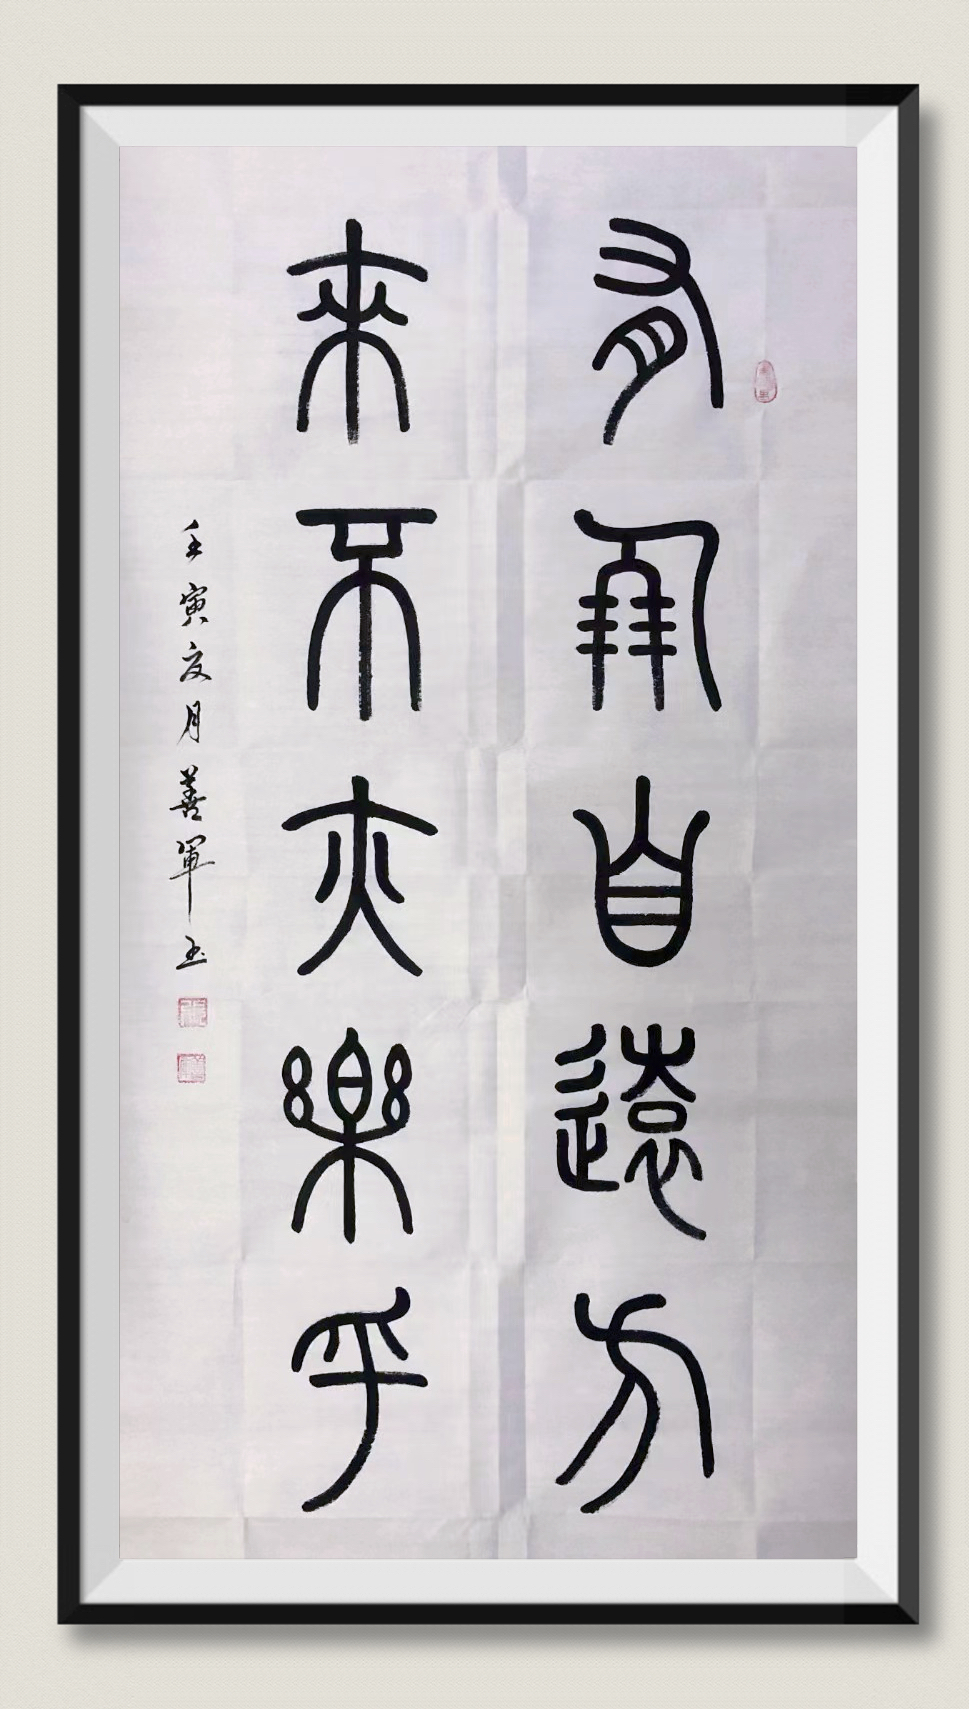 有朋自遠方
來不亦樂乎
壬寅夏月善軍